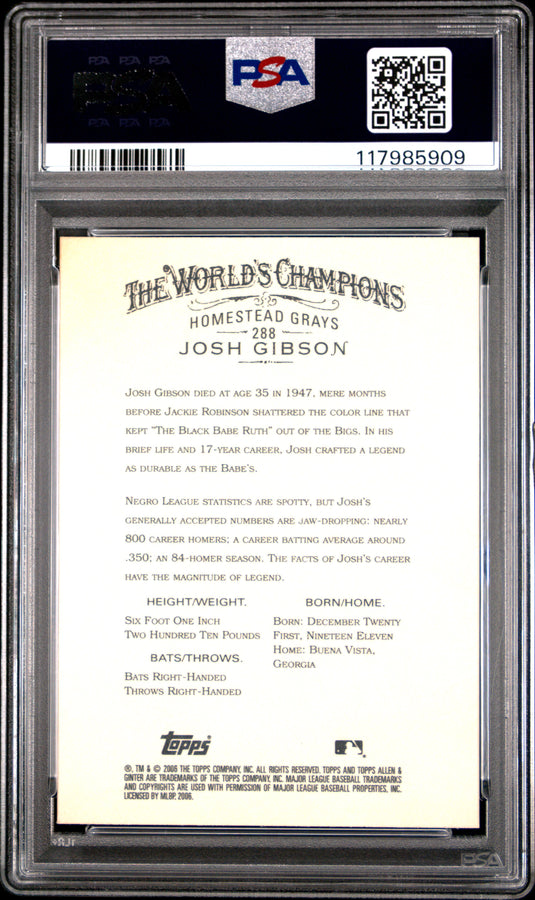 PSA PSA PSA
PSA
PSA PSA PSA
PSA
117985909
THE WORLD'S CHAMPIONS
HOMESTEAD GRAYS
288
JOSH GIBSON
JOSH GIBSON DIED AT AGE 35 IN 1947, MERE MONTHS
BEFORE JACKIE ROBINSON SHATTERED THE COLOR LINE THAT
KEPT "THE BLACK BABE RUTH" OUT OF THE BIGS. IN HIS
BRIEF LIFE AND 17-YEAR CAREER, JOSH CRAFTED A LEGEND
AS DURABLE AS THE BABE'S.
NEGRO LEAGUE STATISTICS ARE SPOTTY, BUT JOSH'S
GENERALLY ACCEPTED NUMBERS ARE JAW-DROPPING: NEARLY
800 CAREER HOMERS; A CAREER BATTING AVERAGE AROUND
.350; AN 84-HOMER SEASON. THE FACTS OF JOSH'S CAREER
HAVE THE MAGNITUDE OF LEGEND.
HEIGHT/WEIGHT.
SIX FOOT ONE INCH
TWO HUNDRED TEN POUNDS
BATS/THROWS.
BATS RIGHT-HANDED
THROWS RIGHT-HANDED
BORN/HOME.
BORN: DECEMBER TWENTY
FIRST, NINETEEN ELEVEN
HOME: BUENA VISTA,
GEORGIA
Topps
®, TM & © 2006 THE TOPPS COMPANY, INC. ALL RIGHTS RESERVED. TOPPS AND TOPPS ALLEN &
GINTER ARE TRADEMARKS OF THE TOPPS COMPANY, INC. MAJOR LEAGUE BASEBALL TRADEMARKS
AND COPYRIGHTS ARE USED WITH PERMISSION OF MAJOR LEAGUE BASEBALL PROPERTIES, INC.
LICENSED BY MLBP, 2006.
PSA